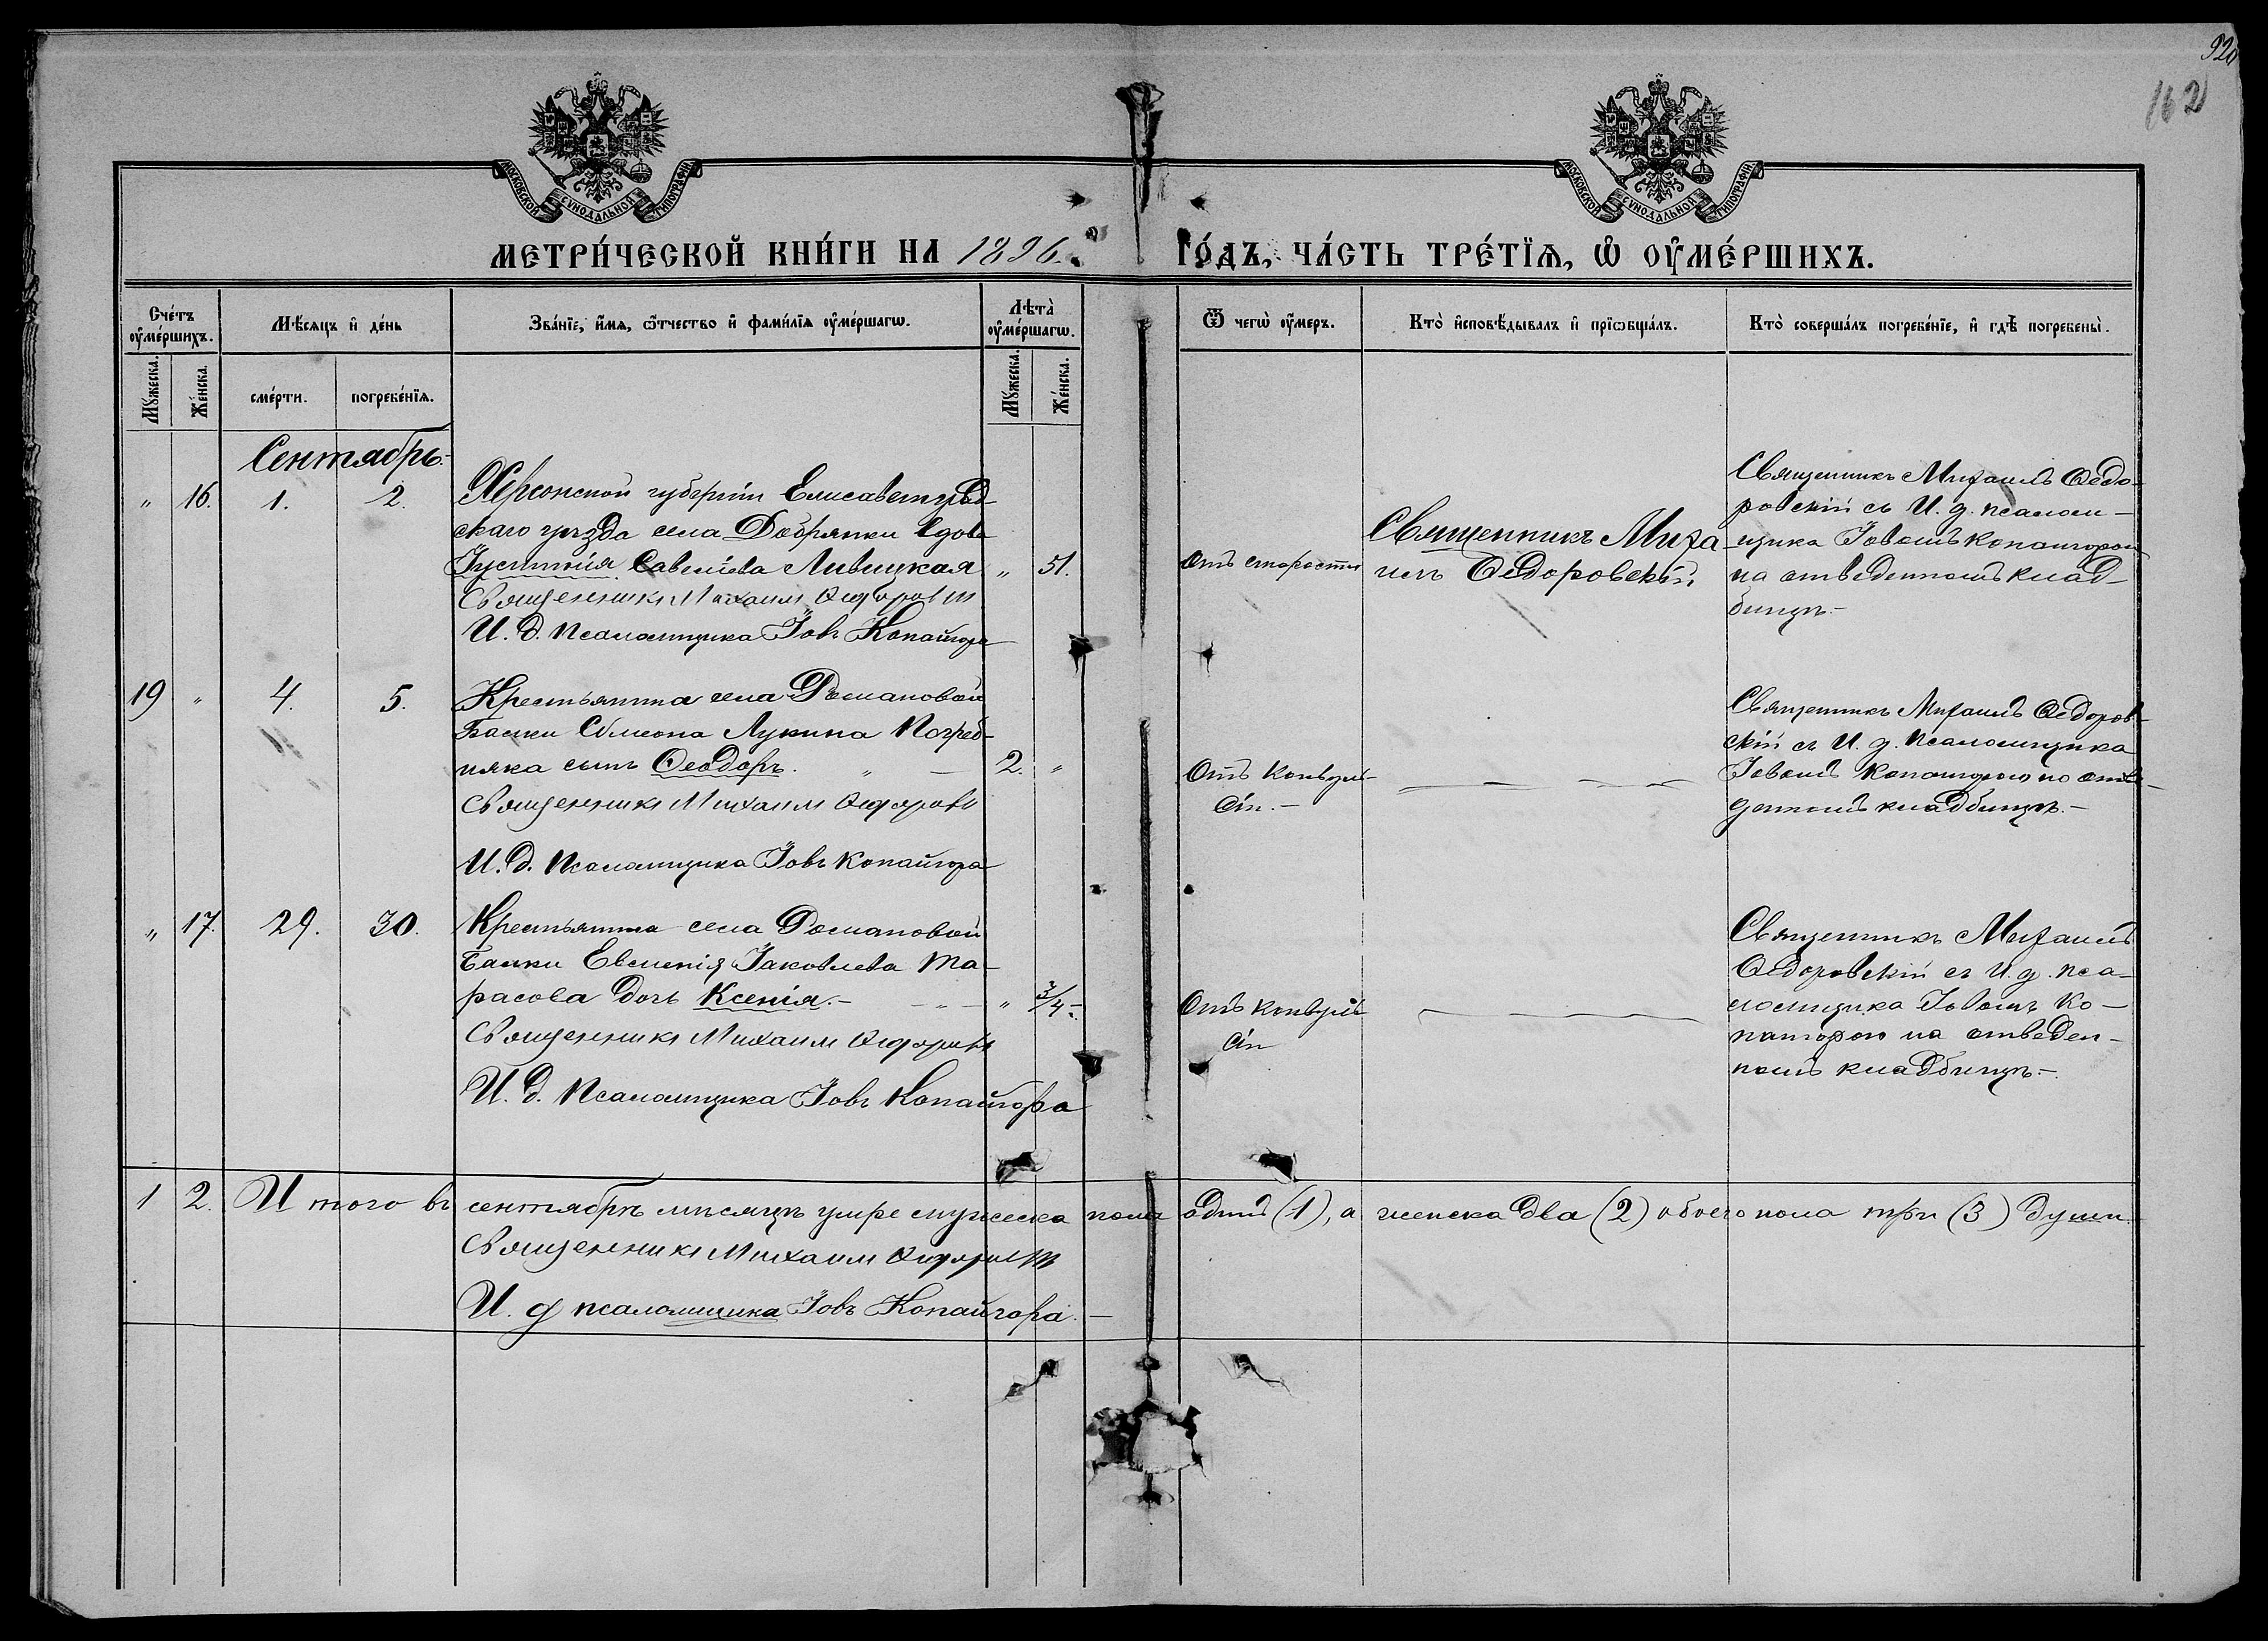 920
162
МОСКОВСКОЙ СѴНОДАЛЬНОЙ ТИПОГРАФІИ.
МОСКОВСКОЙ СѴНОДАЛЬНОЙ ТИПОГРАФІИ.
МЕТРИ́ЧЕСКОЙ КНИ́ГИ НА 1896. ГО́ДЪ, ЧА́СТЬ ТРЕ́ТЇѦ, Ѡ ОУ҆МЕ́РШИХЪ.
Сче́тъ оу҆ме́ршихъ.
Мꙋ́жеска.
Же́нска.
Мѣ́сяцъ и҆ де́нь
сме́рти.
погребе́нїѧ.
Зва́нїе, и҆́мѧ, ѻ҆́тчество и҆ фами́лїѧ оу҆ме́ршагѡ.
Лѣта̀ оу҆ме́ршагѡ.
Мꙋ́жеска.
Же́нска.
Ѿ чегѡ̀ оу҆́меръ.
Кто̀ и҆сповѣ́дывалъ и҆ прїѡбща́лъ.
Кто̀ соверша́лъ погребе́нїе, и҆ гдѣ̀ погребены̀.
Сентябрь.
" 16. 1. 2.
Херсонской губерніи Елисаветград-
скаго уѣзда села Добрянки вдова
Іустинія Савелїева Ливицкая " 51.
Священникъ Михаилъ Ѳедоровскій
И. д. Псаломщика Іовъ Копайгора
Отъ старости
Священникъ Миха-
илъ Ѳедоровскій
Священникъ Михаилъ Ѳедо-
ровскій съ И. д. псалом-
щика Іовомъ Копайгорою
на отведенномъ клад-
бищѣ.-
19 " 4. 5.
Крестьянина села Романовой
Балки Симеона Лукина Погреб-
няка сынъ Ѳеодоръ. " — 2. "
Священникъ Михаилъ Ѳедоровскій
И. д. Псаломщика Іовъ Копайгора
Отъ конвуль-
сіи.-
Священникъ Михаилъ Ѳедоров-
скій съ И. д. Псаломщика
Іовомъ Копайгорою на отве-
денномъ кладбищѣ.-
" 17. 29. 30.
Крестьянина села Романовой
Балки Евсенія Іаковлева Та-
расова дочь Ксенія.- " 3/4.-
Священникъ Михаилъ Ѳедоровскій
И. д. Псаломщика Іовъ Копайгора
Отъ конвуль-
сіи
Священникъ Михаилъ
Ѳедоровскій съ И. д. пса-
ломщика Іовомъ Ко-
пайгорою на отведен-
номъ кладбищѣ.-
1 2. Итого въ сентябрѣ мѣсяцѣ умре мужеска пола одинъ (1), а женска два (2) обоего пола три (3) души.
Священникъ Михаилъ Ѳедоровскій
И. д псаломщика Іовъ Копайгора.-